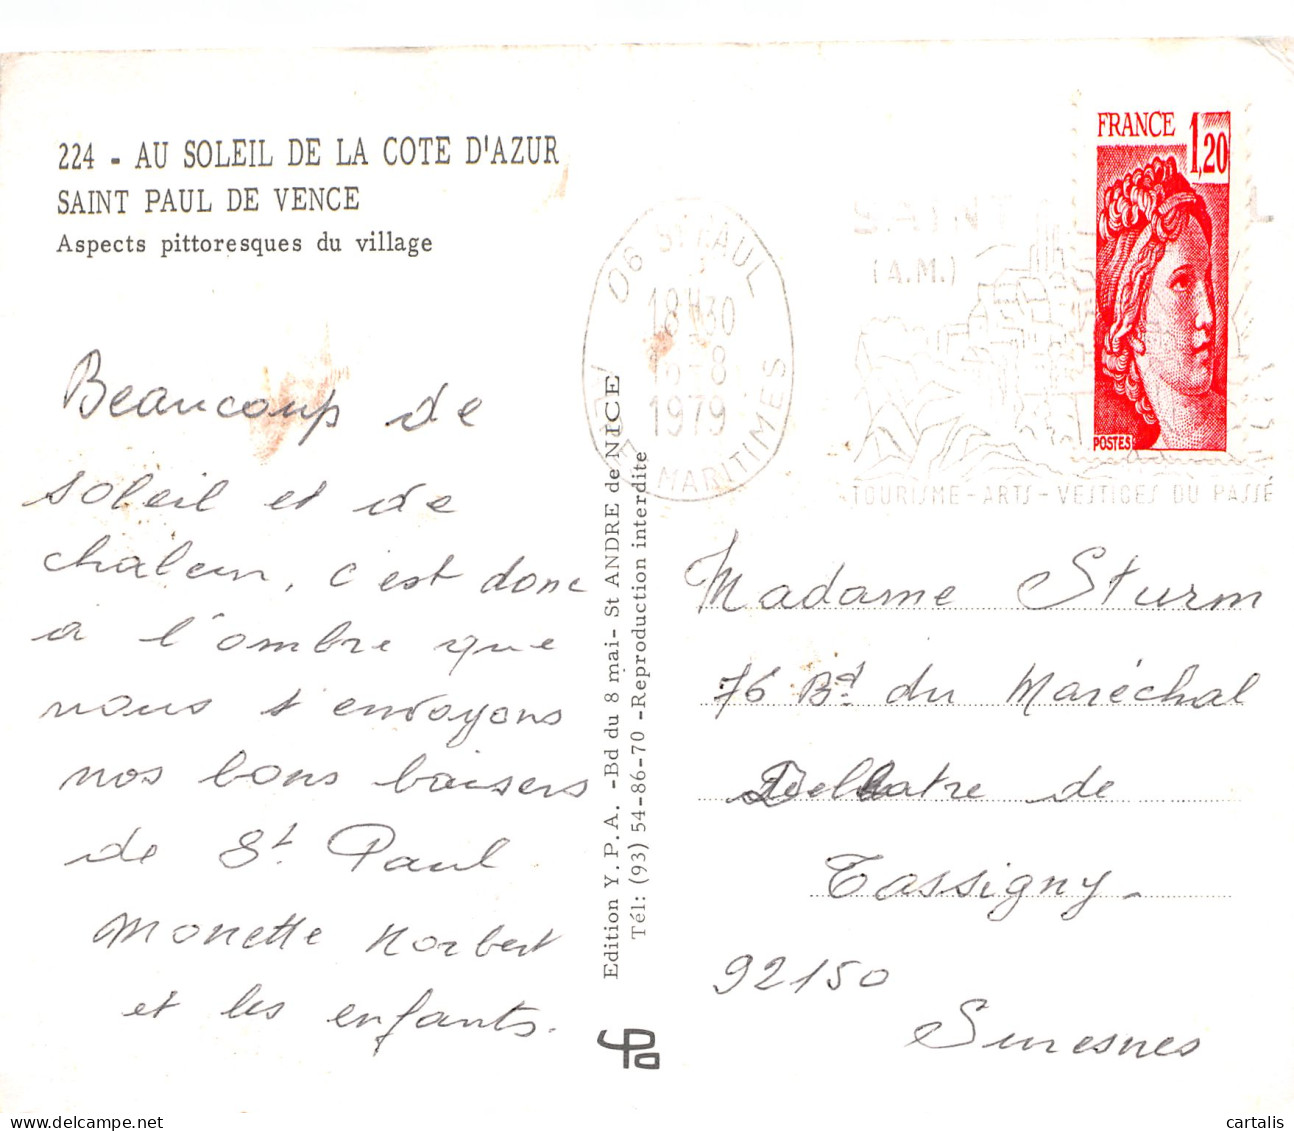 224 - AU SOLEIL DE LA COTE D'AZUR
SAINT PAUL DE VENCE
Aspects pittoresques du village
Beaucoup de
soleil et de
chaleur, c'est donc
a l'ombre que
nous t'envoyons
nos bons baisers
de St Paul
Monette Norbert
et les enfants.
Edition Y.P.A. -Bd du 8 mai- St ANDRE de NICE
Tél: (93) 54-86-70 -Reproduction interdite
06 ST PAUL
18H30
-8
1979
MARITIMES
SAINT
(A.M.)
TOURISME - ARTS - VESTIGES DU PASSÉ
FRANCE 1,20
POSTES
Madame Sturm
76 Bd du Maréchal
Delatre de
Tassigny -
92150
Suresnes
cartalis
delcampe.net